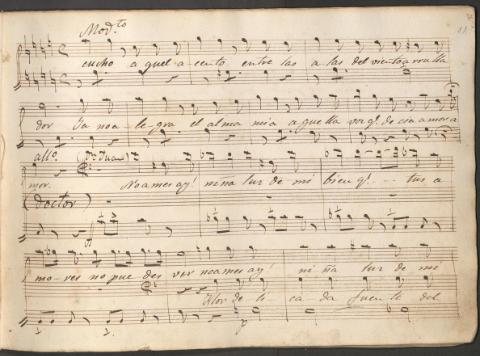 Mod.to
cucho aquel acento entre las alas del viento arrulla
dor Ya no a-legra el alma mia aquella voz q.e decia amor a
all.o
mor. No ames ay! niña luz de mi bien q.... tus a
(Doctor)
mo-res no pue des ver no ames ay! ni ña luz de mi
Flor de li-ca-da fuen te del